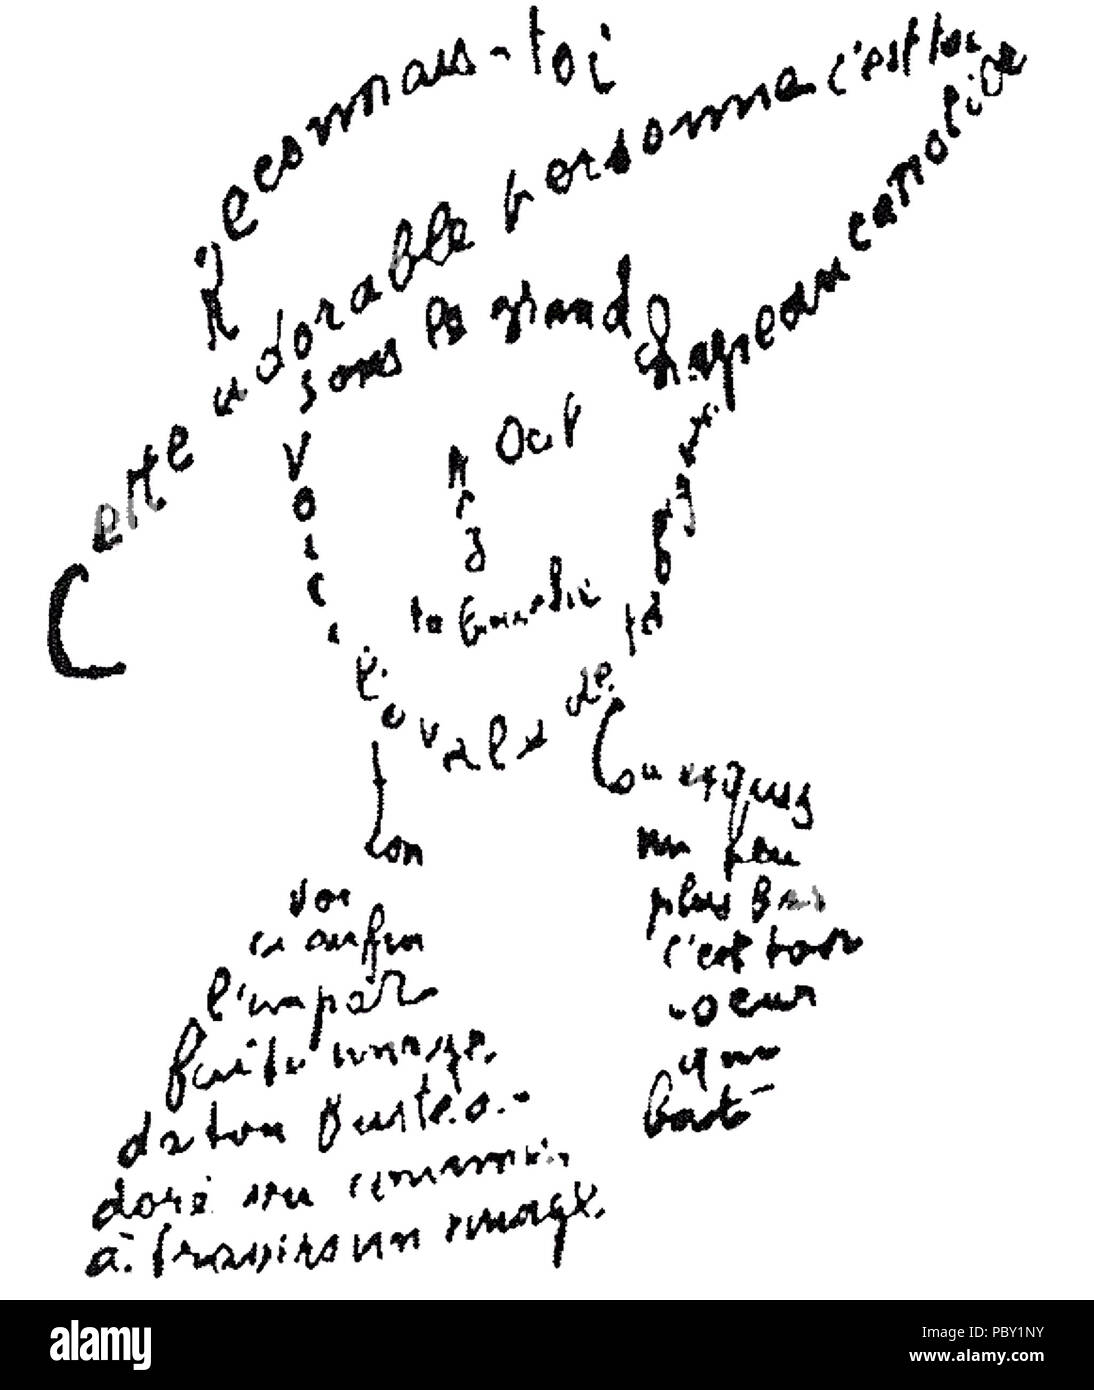 Reconnais-toi
Cette adorable personne c'est toi
sous le grand chapeau canotier
Œil
Nez
ta bouche
Voici l'ovale de ta figure
ton
cou exquis
voi
ci enfin
l'impar
faite image
de ton buste a
doré vu comme
à travers un nuage
un peu
plus bas
c'est ton
coeur
qui
bat
a
alamy
Image ID: PBY1NY
www.alamy.com